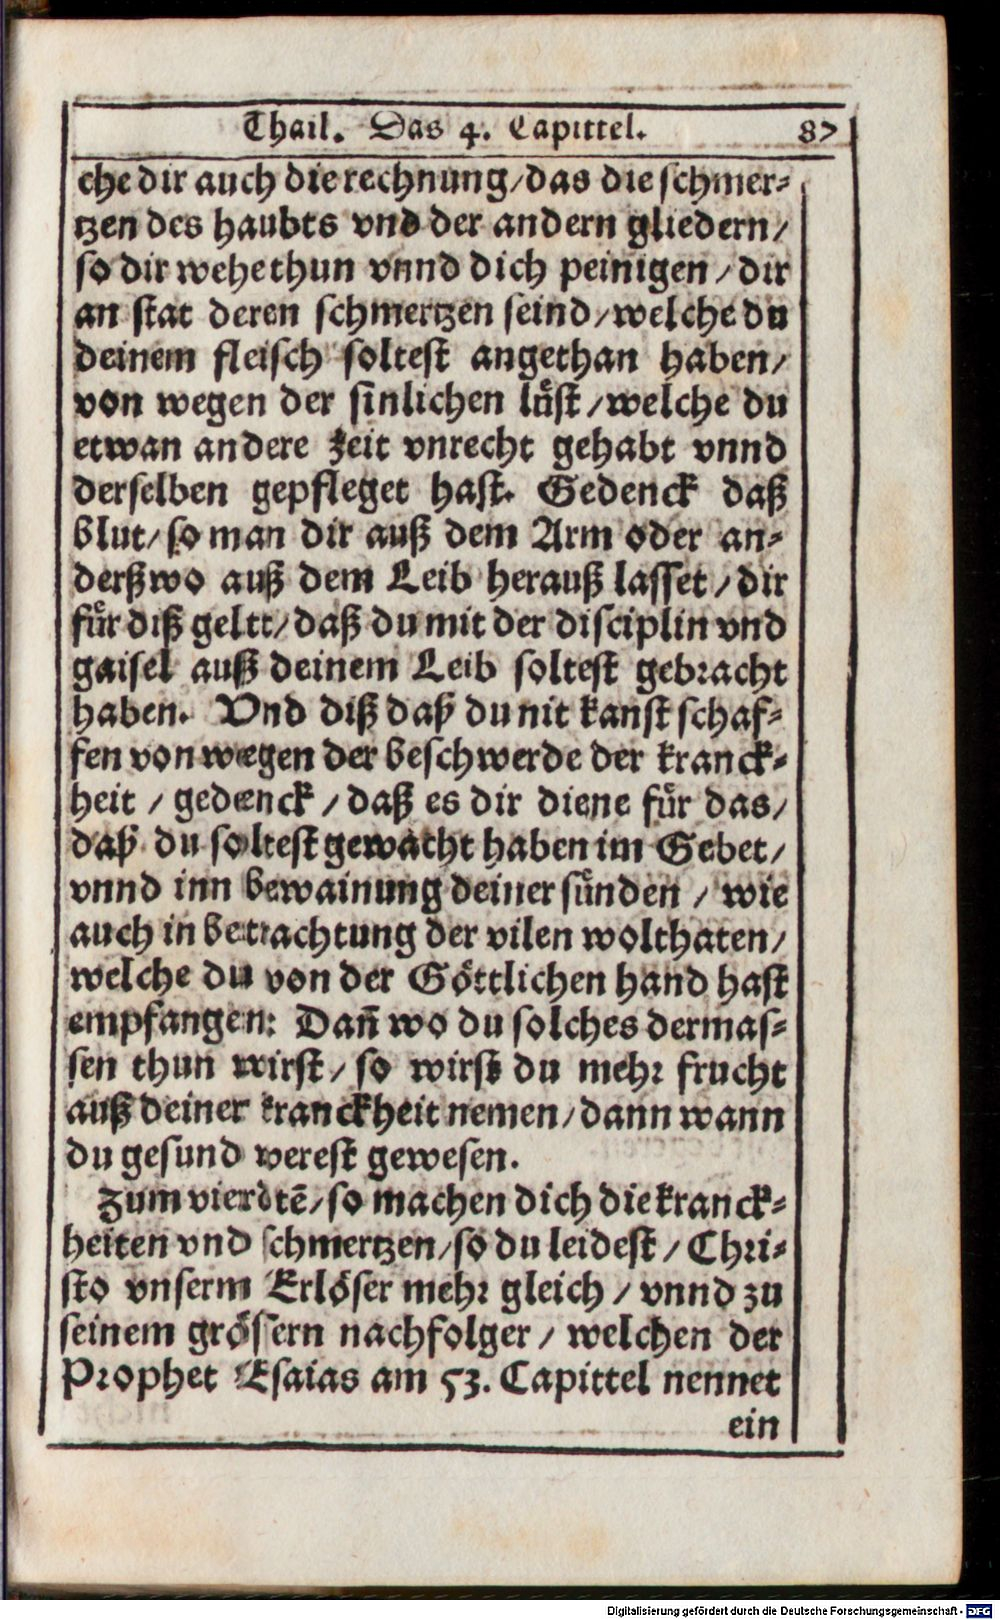 Thail. Das 4. Capittel. 87
che dir auch die rechnung/das die schmer-
tzen des haubts vnd der andern gliedern/
so dir wehe thun vnnd dich peinigen/dir
an stat deren schmertzen seind/welche du
deinem fleisch soltest angethan haben/
von wegen der sinlichen lůst/welche du
etwan andere zeit vnrecht gehabt vnnd
derselben gepfleget hast. Gedenck daß
blut/so man dir auß dem Arm oder an-
derßwo auß dem Leib herauß lasset/dir
fůr diß geltt/daß du mit der disciplin vnd
gaisel auß deinem Leib soltest gebracht
haben. Vnd diß daß du nit kanst schaf-
fen von wegen der beschwerde der kranck-
heit/gedenck/daß es dir diene fůr das/
daß du soltest gewacht haben im Gebet/
vnnd inn bewainung deiner sůnden/wie
auch in betrachtung der vilen wolthaten/
welche du von der Göttlichen hand hast
empfangen: Dañ wo du solches dermas-
sen thun wirst/so wirst du mehr frucht
auß deiner kranckheit nemen/dann wann
du gesund werest gewesen.
Zum vierdtē/so machen dich die kranck-
heiten vnd schmertzen/so du leidest/Chri-
sto vnserm Erlöser mehr gleich/vnnd zu
seinem grössern nachfolger/welchen der
Prophet Esaias am 53. Capittel nennet
ein
Digitalisierung gefördert durch die Deutsche Forschungsgemeinschaft - DFG